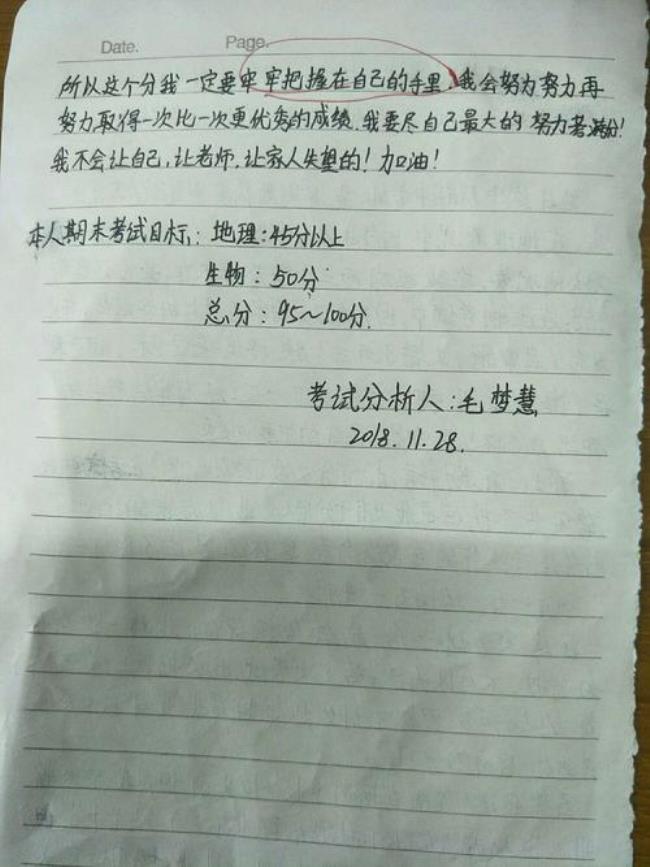 Date. Page.
所以这个分我一定要牢牢把握在自己的手里,我会努力努力再
努力取得一次比一次更优秀的成绩.我要尽自己最大的努力考满份!
我不会让自己,让老师,让家人失望的!加油!
本人期末考试目标:地理:45分以上
生物:50分
总分:95~100分.
考试分析人:毛梦慧
2018.11.28.